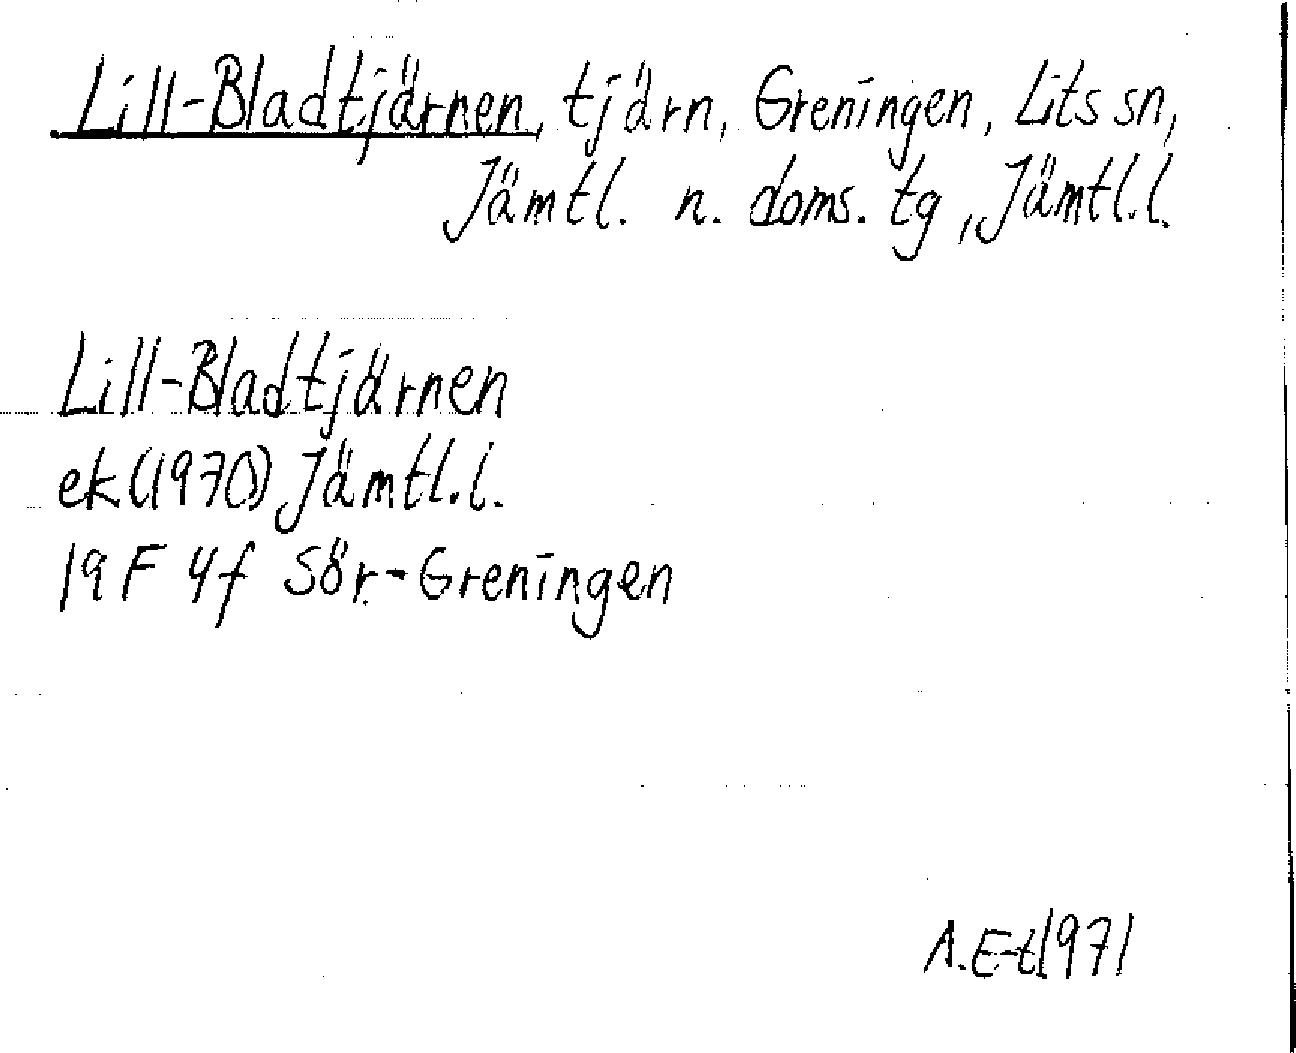 Lill-Bladtjärnen, tjärn, Greningen, Lits sn,
Jämtl. n. doms. tg, Jämtl. l.
Lill-Bladtjärnen
ek (1970) Jämtl. l.
19 F 4f Sör-Greningen
A. E-t 1971